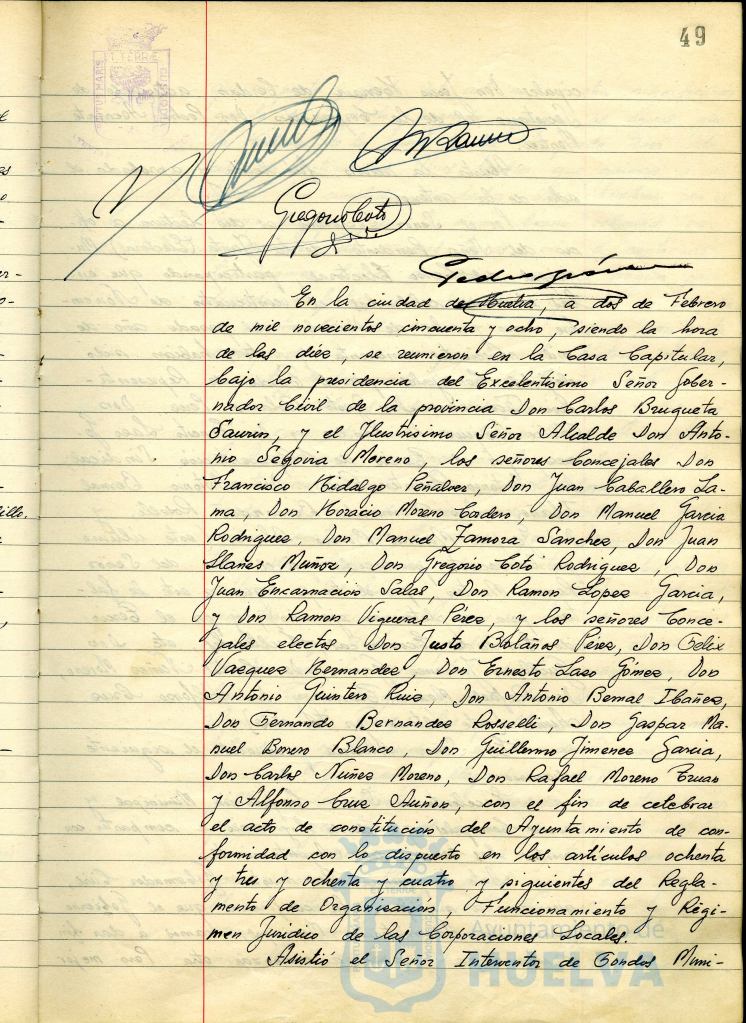 49
Gregorio Coto
En la ciudad de Huelva, a dos de Febrero
de mil novecientos cincuenta y ocho, siendo la hora
de las diez, se reunieron en la Casa Capitular,
bajo la presidencia del Excelentisimo Señor Gober-
nador Civil de la provincia Don Carlos Brugueta
Saurin, y el Ilustrisimo Señor Alcalde Don Anto-
nio Segovia Moreno, los señores Concejales Don
Francisco Hidalgo Peñalver, Don Juan Caballero La-
ma, Don Horacio Moreno Cordero, Don Manuel Garcia
Rodriguez, Don Manuel Zamora Sanchez, Don Juan
Llanes Muñoz, Don Gregorio Coto Rodriguez, Don
Juan Encarnación Salas, Don Ramon Lopez Garcia,
y Don Ramon Vigueras Pérez, y los señores Conce-
jales electos Don Justo Bolaños Pérez, Don Felix
Vazquez Hernandez, Don Ernesto Laso Gómez, Don
Antonio Quintero Ruiz, Don Antonio Bernal Ibañez,
Don Fernando Bernandez Rosselli, Don Gaspar Ma-
nuel Borrero Blanco, Don Guillermo Jimenez Garcia,
Don Carlos Nuñez Moreno, Don Rafael Moreno
y Alfonso Cruz Auñon, con el fin de celebrar
el acto de constitución del Ayuntamiento de con-
formidad con lo dispuesto en los artículos ochenta
y tres y ochenta y cuatro y siguientes del Regla-
mento de Organización, Funcionamiento y Régi-
men Juridico de las Corporaciones Locales.
Asistió el Señor Interventor de Fondos Muni-
Ayuntamiento de
HUELVA